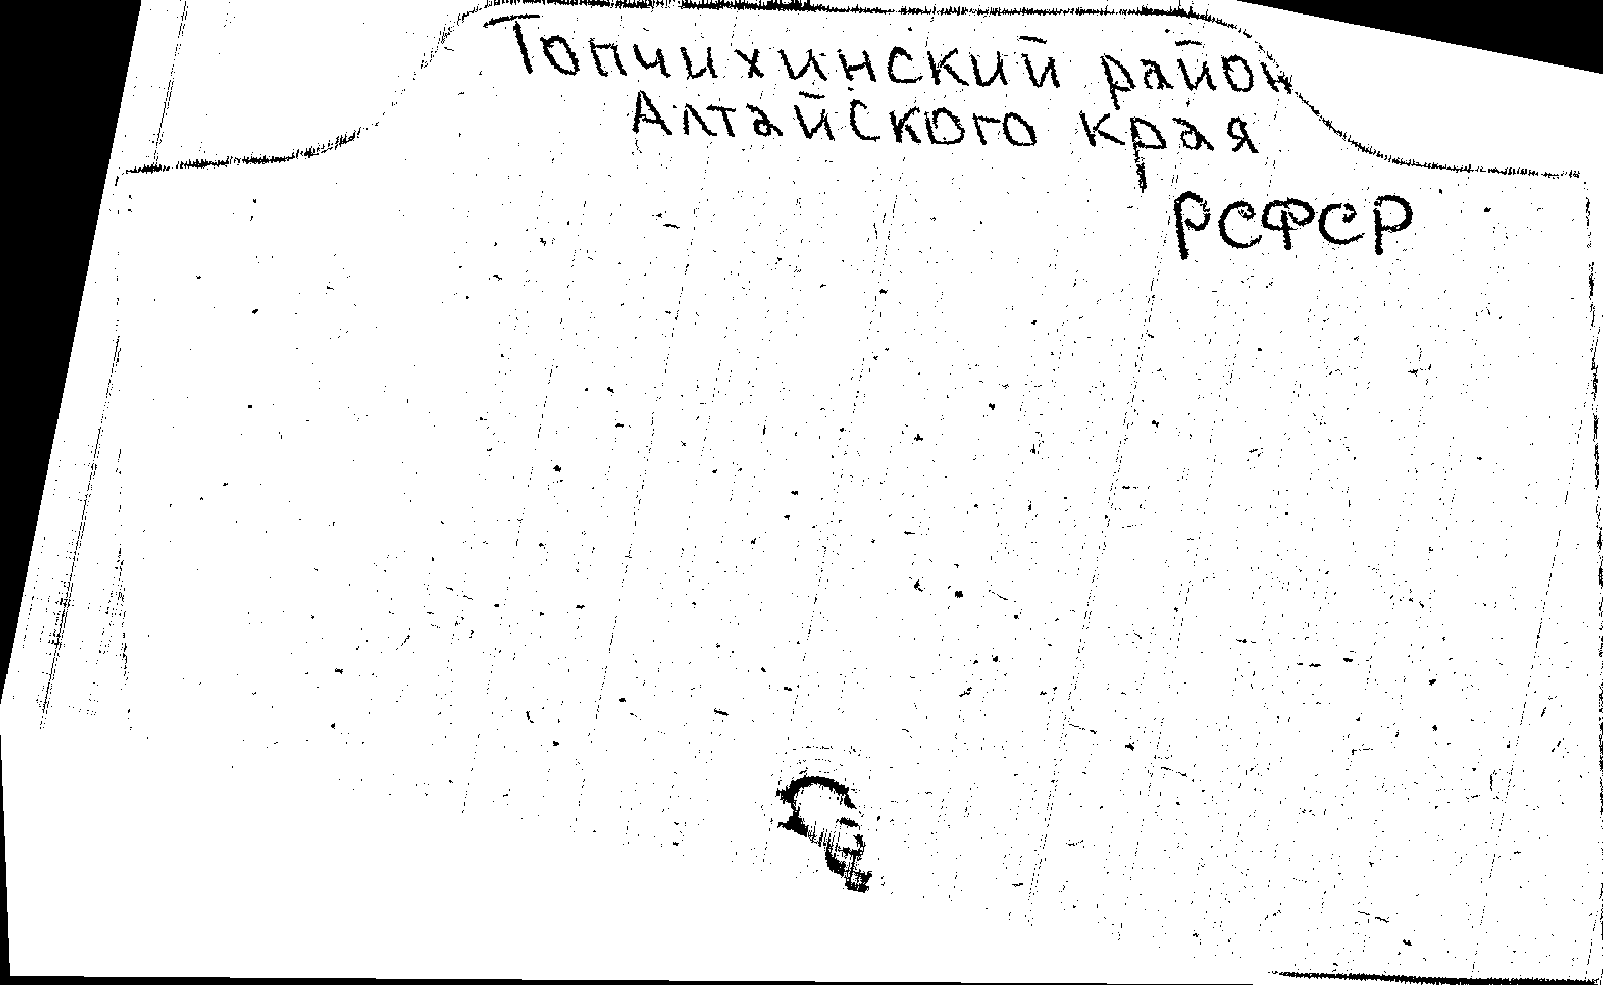 Топчихинский район
Алтайского края
РСФСР